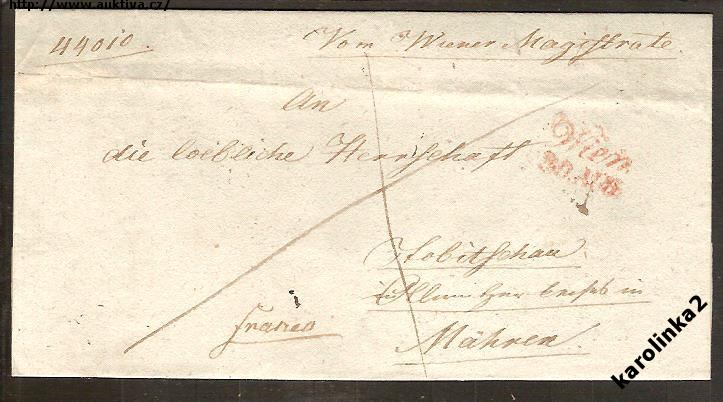 http://www.auktiva.cz/
44010. Vom Wiener Magistrate.
An
die loebliche Herrschaft
Wien
Tobitschau
Ollmützer in
Mähren.
franco
karolinka2